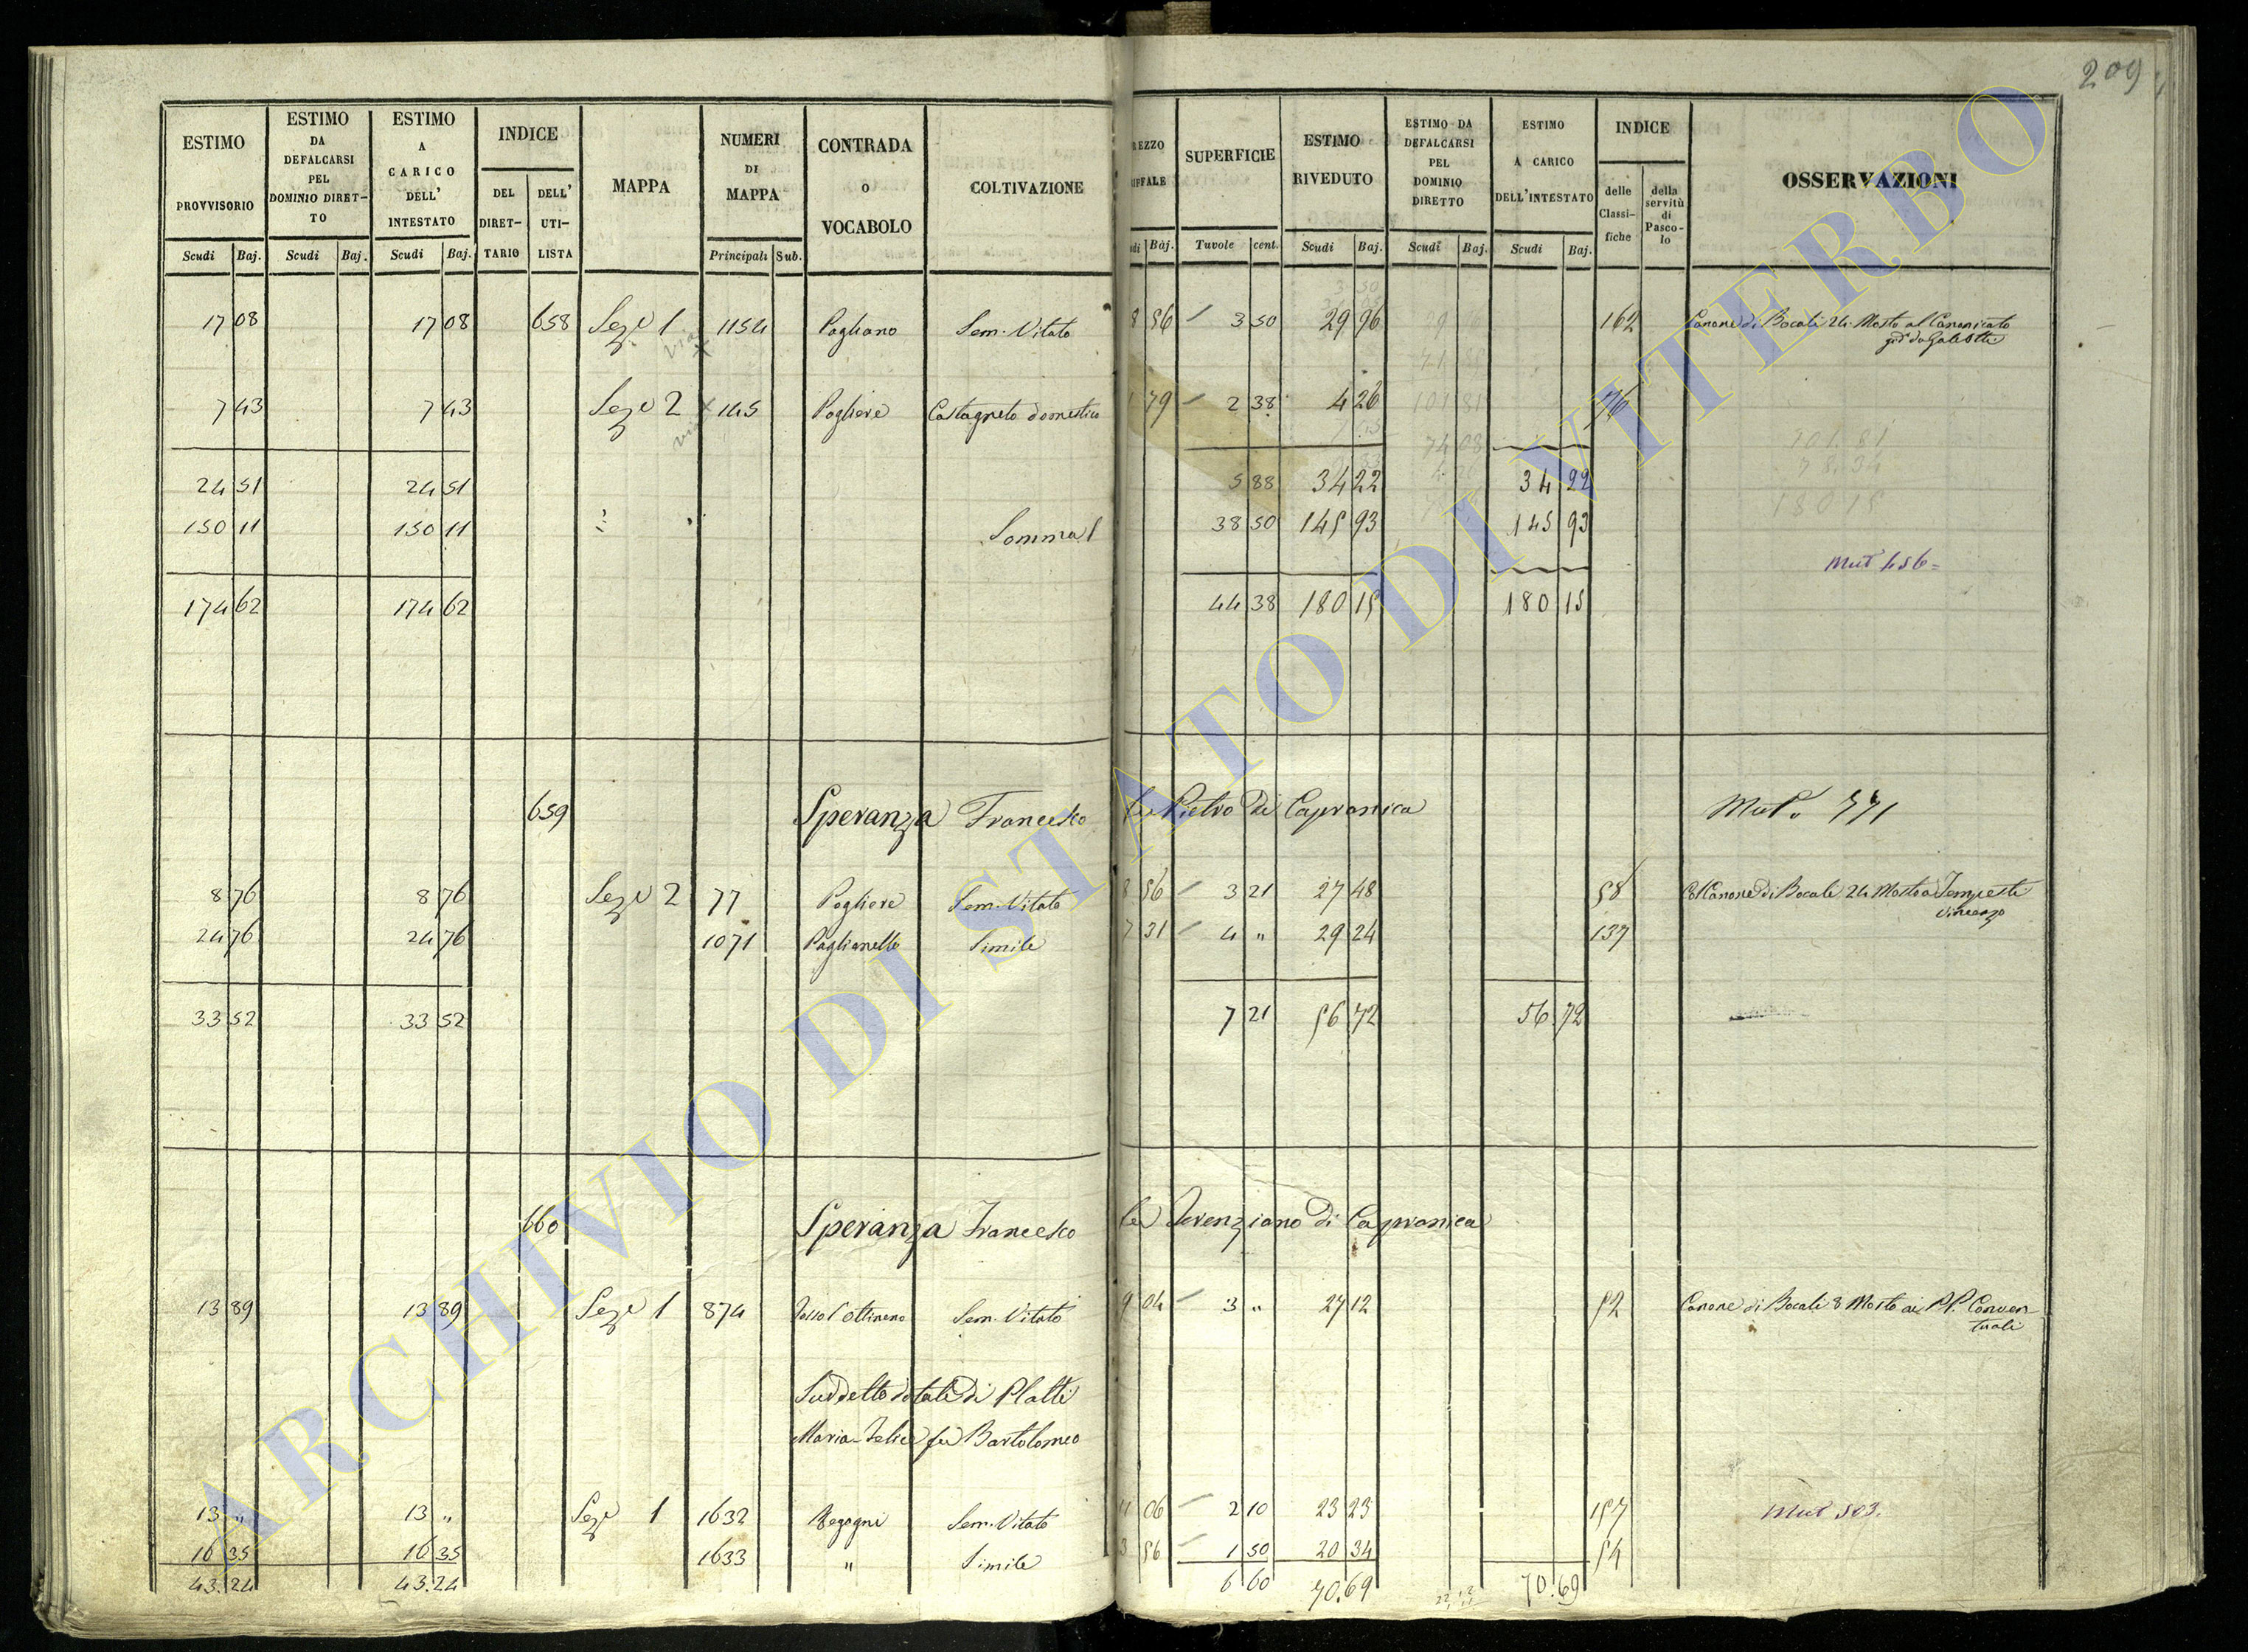 209
ESTIMO PROVVISORIO Scudi Baj.
ESTIMO DA DEFALCARSI PEL DOMINIO DIRETTO Scudi Baj.
ESTIMO A CARICO DELL' INTESTATO Scudi Baj.
INDICE DEL DIRETTARIO DELL' UTILISTA
MAPPA
NUMERI DI MAPPA Principali Sub.
CONTRADA O VOCABOLO
COLTIVAZIONE
SUPERFICIE Tavole cent.
ESTIMO RIVEDUTO Scudi Baj.
ESTIMO DA DEFALCARSI PEL DOMINIO DIRETTO Scudi Baj.
ESTIMO A CARICO DELL'INTESTATO Scudi Baj.
INDICE delle Classifiche della servitù di Pascolo
OSSERVAZIONI
17 08 17 08 658 Sez.e 1 1154 Pogliano Sem. Vitato 8 56 3 50 29 96 162 Canone di Bocali 24 Mosto al Canonicato
7 43 7 43 Sez.e 2 145 Pogliere Castagneto domestico 1 79 2 38 4 26 76
24 51 24 51 5 88 34 22 34 22
150 11 150 11 Somma 38 50 145 93 145 93
Mut 456=
174 62 174 62 44 38 180 15 180 15
659 Speranza Francesco fu Pietro di Capranica Mut. 771
8 76 8 76 Sez.e 2 77 Pogliere Sem. Vitato 8 56 3 21 27 48 58 Canone di Bocali 24 Mosto a Tempesti
Vincenzo
24 76 24 76 1071 Poglianello Simile 7 31 4 " 29 24 137
33 52 33 52 7 21 56 72 56 72
660 Speranza Francesco fu Terenziano di Capranica
13 89 13 89 Sez.e 1 874 Sem. Vitato 9 04 3 " 27 12 52 Canone di Bocali 8 Mosto ai PP. Conven-
tuali
Suddetto dotale di Platti
Maria Felice fu Bartolomeo
13 " 13 " Sez.e 1 1632 Sem. Vitato 11 06 2 10 23 23 157 Mut 503.
16 35 16 35 1633 " Simile 13 56 1 50 20 34 54
43.24 43.24 6 60 70.69 70.69
ARCHIVIO DI STATO DI VITERBO